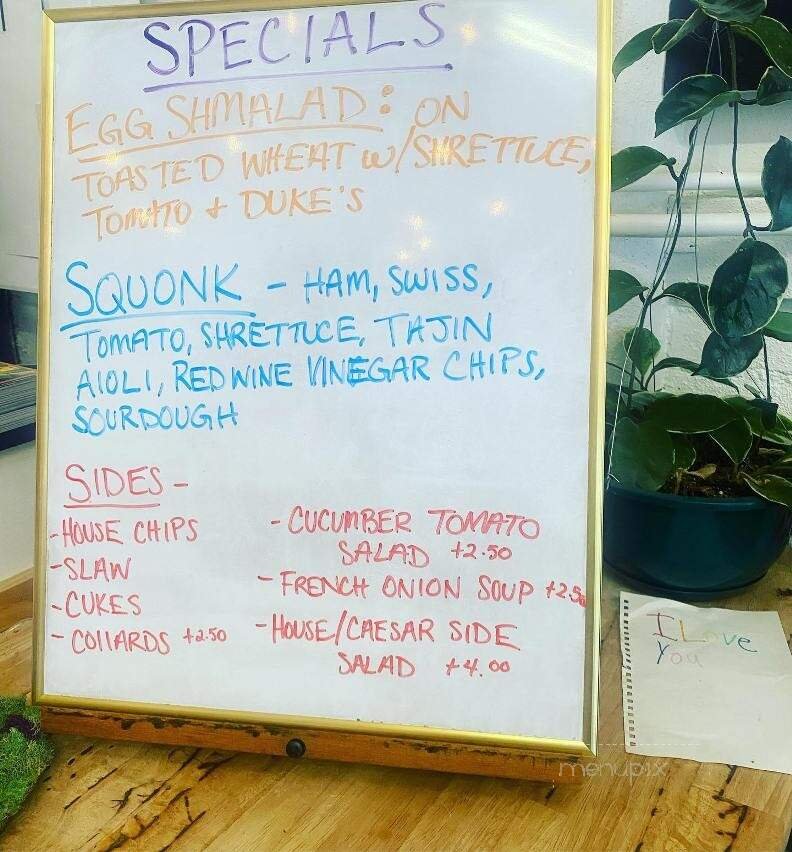 SPECIALS
EGG SHMALAD: ON
TOASTED WHEAT W/SHRETTUCE,
TOMATO + DUKE'S
SQUONK - HAM, SWISS,
TOMATO, SHRETTUCE, TAJIN
AIOLI, RED WINE VINEGAR CHIPS,
SOURDOUGH
SIDES -
- HOUSE CHIPS
- SLAW
- CUKES
- COllARDS +2.50
- CUCUMBER TOMATO
SALAD +2.50
- FRENCH ONION SOUP +2.50
- HOUSE/CAESAR SIDE
SALAD +4.00
I Love
You
menupix